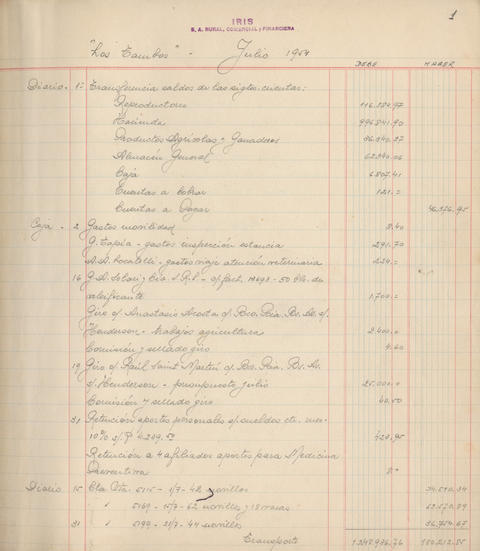 1
IRIS
S. A. RURAL, COMERCIAL Y FINANCIERA
"Los Tambos" - Julio 1954
DEBE HABER
Diario - 1º Transferencia saldos de las sigtes. cuentas:
Reproductores 116.584.97
Hacienda 996.841.90
Productos Agrícolas y Ganaderos
Almacén General
Caja 6.807.41
Cuentas a Cobrar 121.=
Cuentas a Pagar
Caja - 2 Gastos movilidad 8.40
G. Tapia - gastos inspección estancia 291.70
gastos viaje atención veterinaria 224.=
16
1.700.=
Giro o/ Anastasio Acosta c/ Bco. Pcia. Bs. As. s/
Henderson - trabajos agricultura 2.400.=
Comisión y sellado giro 4.60
19 Giro o/ Raúl Saint Martin c/ Bco. Pcia. Bs. As.
s/ Henderson - presupuesto julio 25.000.=
Comisión y sellado giro 40.50
31 Retención aportes personales s/ sueldos cte. mes
10% s/ $ 4.209.50 420.95
Retención a 4 afiliados aportes para Medicina
Preventiva 8.=
Diario 15 Cta. Vta. 5115 - 1/7 - 42 novillos
" 5169 - 15/7 - 62 novillos y 18 vacas
31 " 5199 - 21/7 - 44 novillos
Transporte